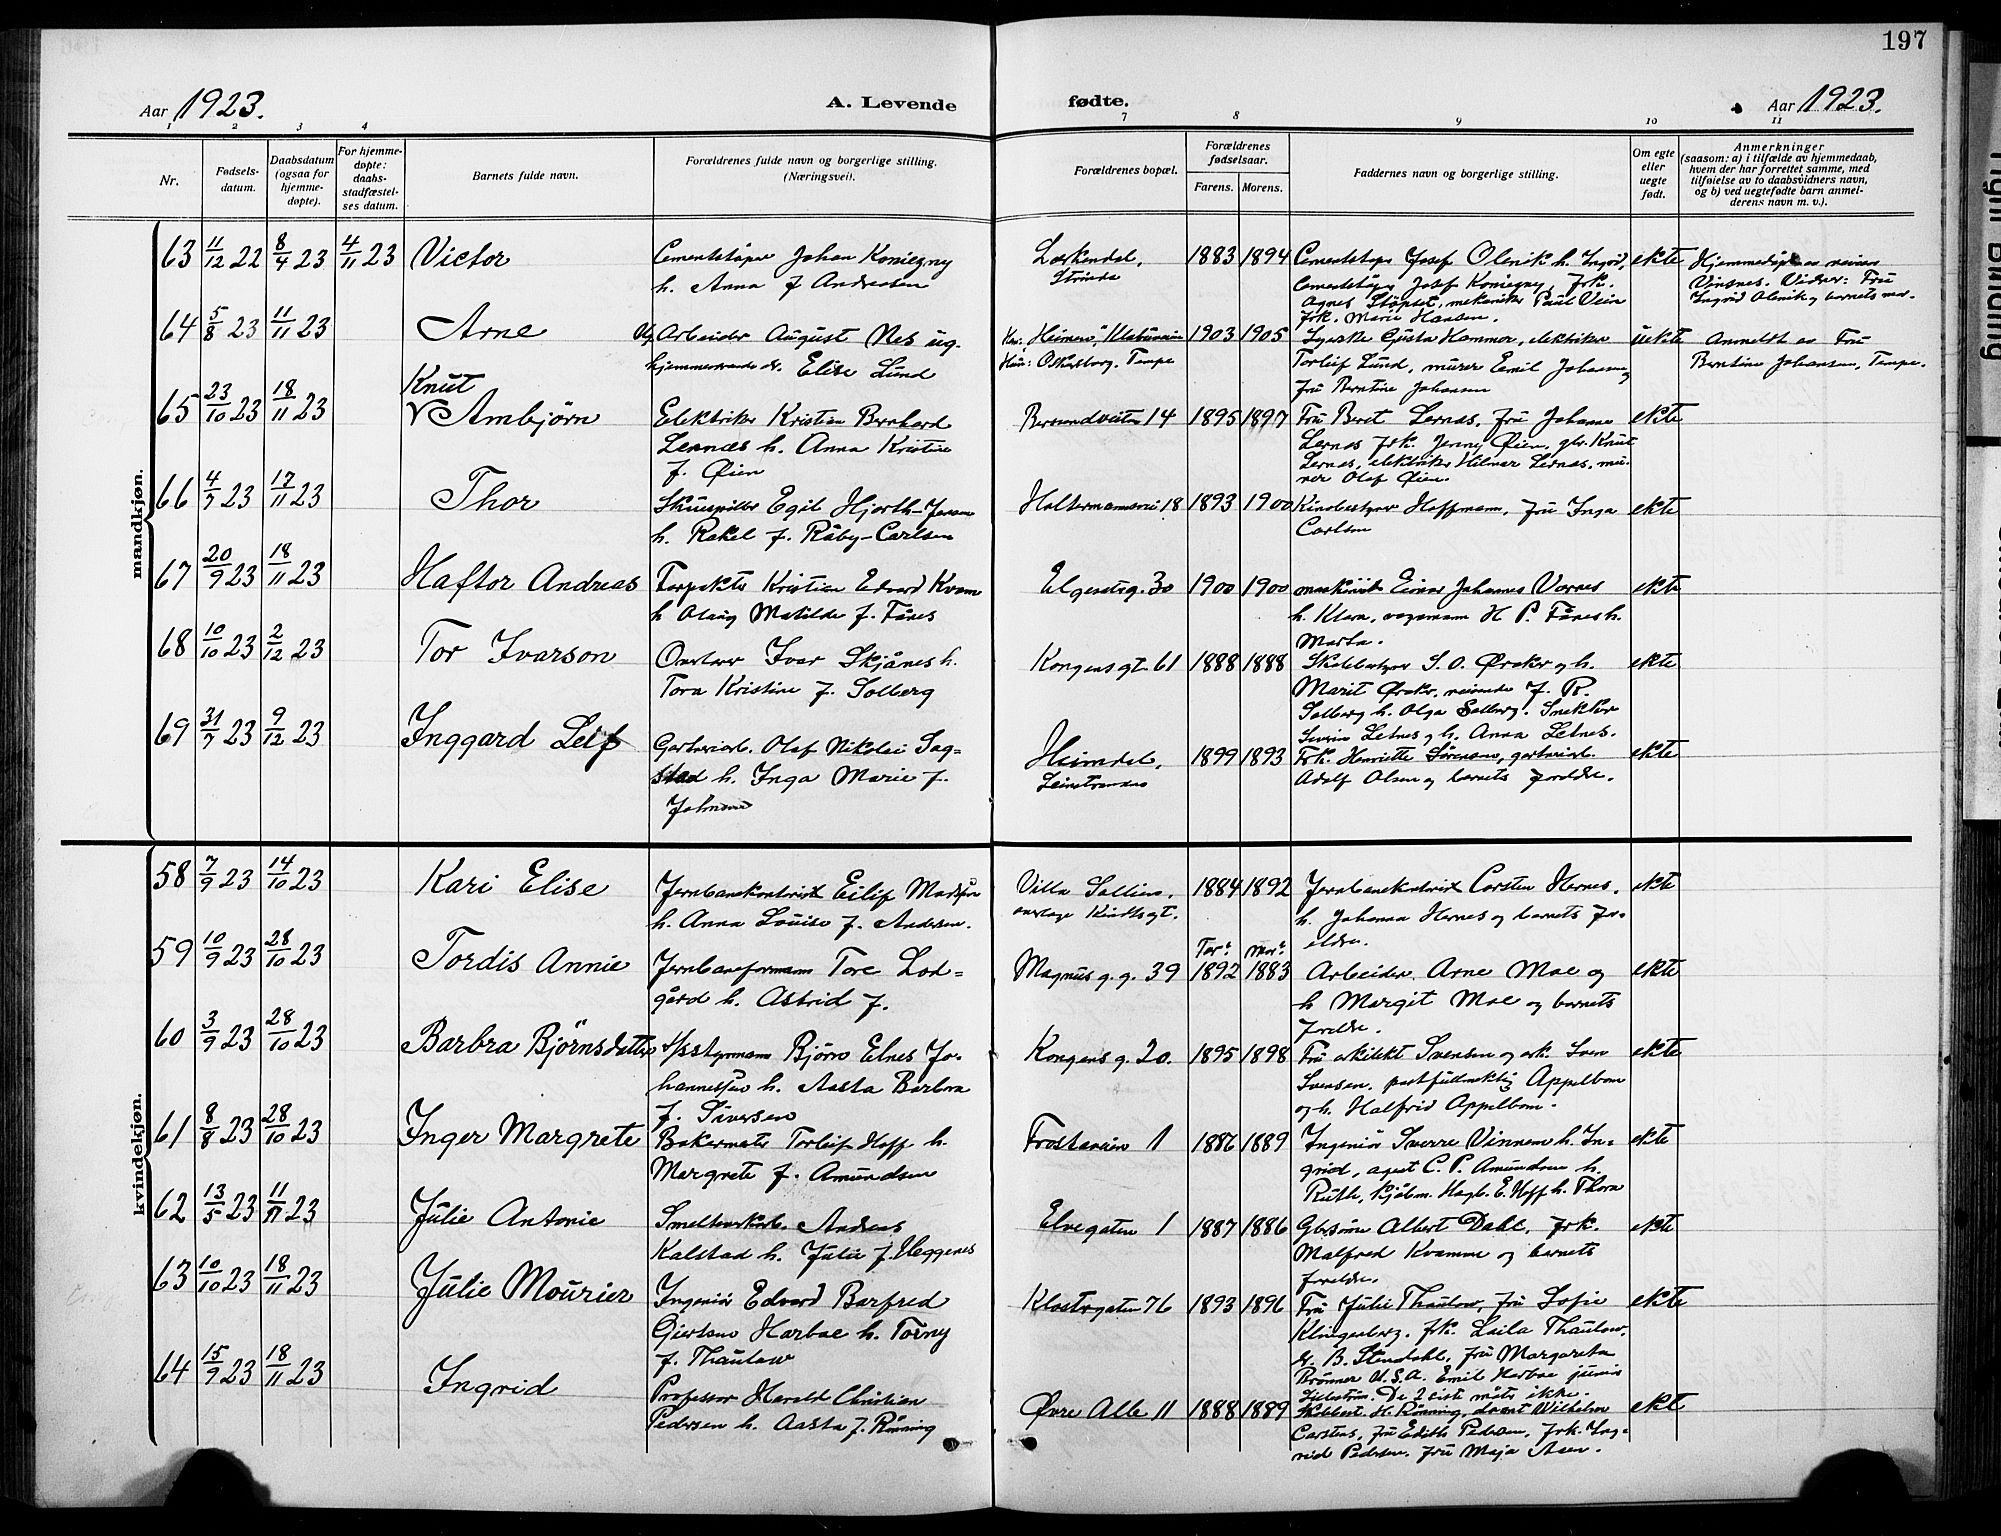 197
Aar 1923. A. Levende fødte. Aar 1923.
1 2 3 4 7 8 9 10 11
Nr.
Fødsels-
datum.
Daabsdatum
(ogsaa for
hjemme-
døpte).
For hjemme-
døpte:
daabs-
stadfæstel-
ses datum.
Barnets fulde navn.
Forældrenes fulde navn og borgerlige stilling.
(Næringsvei).
Forældrenes bopæl.
Forældrenes
fødselsaar.
Farens. Morens.
Faddernes navn og borgerlige stilling.
Om egte
eller
uegte
født.
Anmerkninger
(saasom: a) i tilfælde av hjemmedaab,
hvem der har forrettet samme, med
tilføielse av to daabsvidners navn,
og b) ved uegtefødte barn anmel-
derens navn m. v.).
mandkjøn.
63 11/12 22 8/4 23 4/11 23 Victor
Cementstøper Johan Koniegny
h. Anna f Andreasen
1883 1894
Cementstøper Josef Olenik h. Ingrid,
cementstøper Josef Koniegny, frk.
Agnes Støpset, mekaniker Paul Vein
frk. Marie Hansen.
ekte
Vinsnes. Vidner: Fru
Ingrid Olenik og barnets mor.
64 5/8 23 11/11 23 Arne
Arbeider August Nes ug.
hjemmeværende dr. Elise Lund
Hun: Oskarborg, Tempe
1903 1905
Syerske Gusta Hammer, elektriker
Torleif Lund, murer Emil Johansen og
fru Berntine Johansen
uekte
Anmeldt av Fru
Berntine Johansen, Tempe.
65 23/10 23 18/11 23 Knut
V Ambjørn
Elektriker Kristian Bernhard
Lernæs h. Anna Kristine
f. Øien
14 1895 1897
Fru Beret Lernæs, fru Johanna
Lernæs frk. Jenny Øien, gbr. Knut
Lernæs, elektriker Hilmar Lernæs, mu-
rer Olaf Øien.
ekte
66 4/7 23 17/11 23 Thor
Skuespiller Egil Hjorth-Jensen
h. Rakel f. Råby-Carlsen
Holtermannsvei 18 1893 1900
Kinobestyrer Hoffmann, fru Inga
Carlson
ekte
67 20/9 23 18/11 23 Haftor Andreas
Forpakter Kristian Edvard Kvam
h Olaug Matilde f. Fånes
Elgesetsg. 30 1900 1900
maskinist Einar Johannes Vornes
h. Klara, vognmann H P. Fånes h.
Marta.
ekte
68 10/10 23 2/12 23 Tor Ivarson
Overlærer Ivar Skjånes h.
Tora Kristine f. Solberg
Kongensgt. 61 1888 1888
Skolebestyrer S. O. Øraker og h.
Marit Øraker, reisende J. R.
Solberg h. Olga Solberg. Snekker
Severin Letnes og h. Anna Letnes.
ekte
69 31/7 23 9/12 23 Inggard Leif
Gartneriarb. Olaf Nikolai Sag=
stad h. Inga Marie f.
Johnsen
Heimdal,
Leinstranden
1899 1893
Frk. Henriette Sørensen, gartneriarb.
Adolf Olsen og barnets foreldre.
ekte
kvindekjøn.
58 7/9 23 14/10 23 Kari Elise
Jernbanekontorist Eilif Madsen
h. Anna Louise f. Andersen.
Villa
1884 1892
Jernbanekontorist Carsten Hernes,
h. Johanna Hernes og barnets for-
eldre.
ekte
59 10/9 23 28/10 23 Tordis Annie
Jernbaneformann Tore Lod=
gård h. Astrid f.
Magnus g. g. 39
Far: Mor:
1892 1883
Arbeider Arne Moe og
h Margit Moe og barnets
foreldre.
ekte
60 3/9 23 28/10 23 Barbra Bjørnsdatter
styrmann Bjørn Elnes Jo-
hannessen h. Aasta Barbra
f. Siversen
Kongens g. 20. 1895 1898
Fru arkitekt Svensen og ark. Sven
Svensen. postfullmektig Appelbom
og h. Halfrid Appelbom.
ekte
61 8/8 23 28/10 23 Inger Margrete
Bakermester Torleif Hoff h.
Margrete f. Amundsen
Frostaveien 1 1886 1889
Ingeniør Sverre Vinnem h. In=
grid, agent C. P. Amundsen h.
Ruth, kjøbm. Hagb. E. Hoff h. Thora
ekte
62 13/5 23 11/11 23 Julie Antonie
Smelteverkarb. Andreas
Kalstad h. Julie f. Heggenes
Elvegaten 1 1887 1886
Gbrsønn Albert Dahl, frk.
Malfred Kvamme og barnets
foreldre.
ekte
63 10/10 23 18/11 23 Julie Mourier
Ingeniør Edvard Barfred
Giertsen Harboe h. Torny
f. Thaulow
Klostergaten 76 1893 1896
Fru Julie Thaulow, fru Sofie
Klingenberg. frk. Laila Thaulow,
B. Stendahl, fru Margareta
Brønner U.S.A. Emil Harboe junior
De 2 siste møtte ikke.
ekte
64 15/9 23 18/11 23 Ingrid
Professor Harald Christian
Pedersen h. Aasta f. Rønning
Øvre Alle 11 1888 1889
Skolebest. H. Rønning, docent Wilhelm
Carstens, fru Edith Pedersen, frk. Ing-
rid Pedersen. fru Maja Asen.
ekte